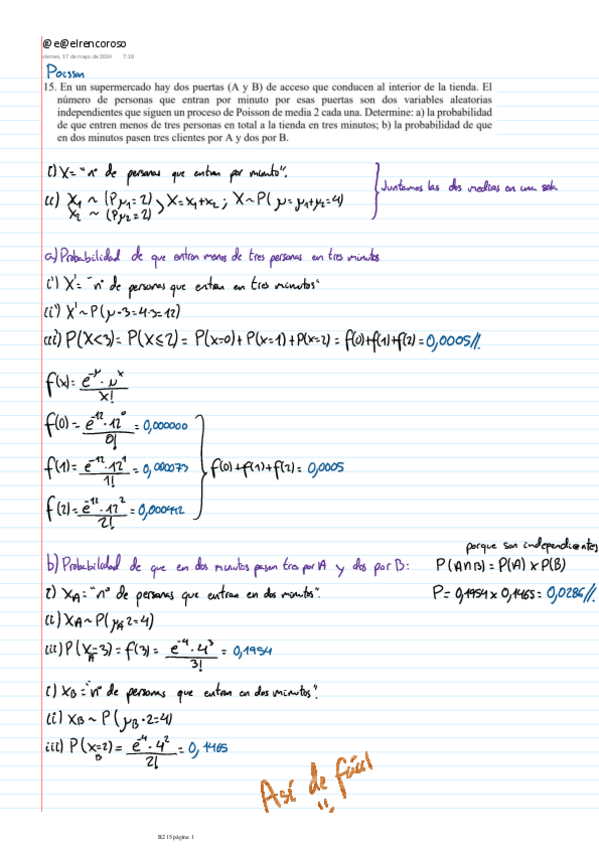 @e@elrencoroso
viernes, 17 de mayo de 2024 7:18
Poisson
15. En un supermercado hay dos puertas (A y B) de acceso que conducen al interior de la tienda. El
número de personas que entran por minuto por esas puertas son dos variables aleatorias
independientes que siguen un proceso de Poisson de media 2 cada una. Determine: a) la probabilidad
de que entren menos de tres personas en total a la tienda en tres minutos; b) la probabilidad de que
en dos minutos pasen tres clientes por A y dos por B.
i) X = "nº de personas que entran por minuto".
ii) X₁ ~ (P μ₁=2)
X₂ ~ (P μ₂=2) } X = X₁+X₂ ; X~P( μ = μ₁+μ₂=4)
Juntamos las dos medias en una sola
a) Probabilidad de que entren menos de tres personas en tres minutos
i') X' = "nº de personas que entran en tres minutos"
ii') X' ~ P(μ·3=4·3=12)
iii) P(X<3) = P(X≤2) = P(x=0) + P(x=1) + P(x=2) = f(0)+f(1)+f(2) = 0,0005//.
f(x) = e^-μ · μ^x / x!
f(0) = e^-12 · 12^0 / 0! = 0,000000
f(1) = e^-12 · 12^1 / 1! = 0,000073
f(2) = e^-12 · 12^2 / 2! = 0,000442
f(0)+f(1)+f(2) = 0,0005
porque son independientes
b) Probabilidad de que en dos minutos pasen tres por A y dos por B: P(A∩B) = P(A) x P(B)
i) X_A = "nº de personas que entran en dos minutos". P = 0,1954 x 0,1465 = 0,0286//.
ii) X_A ~ P(μ_A 2=4)
iii) P(X_A=3) = f(3) = e^-4 · 4^3 / 3! = 0,1954
i) X_B = "nº de personas que entran en dos minutos".
ii) X_B ~ P(μ_B·2=4)
iii) P(X_B=2) = e^-4 · 4^2 / 2! = 0,1465
Así de fácil
B2 15 página 1